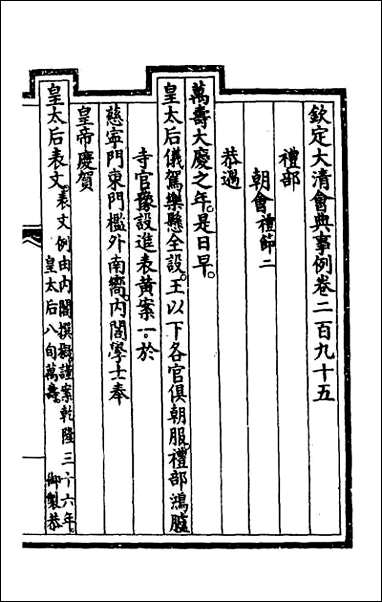 欽定大清會典事例卷二百九十五
禮部
朝會禮節二
恭遇
萬壽大慶之年。是日早。
皇太后儀駕樂懸全設。王以下各官俱朝服。禮部鴻臚
寺官豫設進表黃案一。於
慈寧門東門檻外南嚮。內閣學士奉
皇帝慶賀
皇太后表文。表文例由內閣撰擬謹案乾隆三十六年。
皇太后八旬萬壽。御製恭